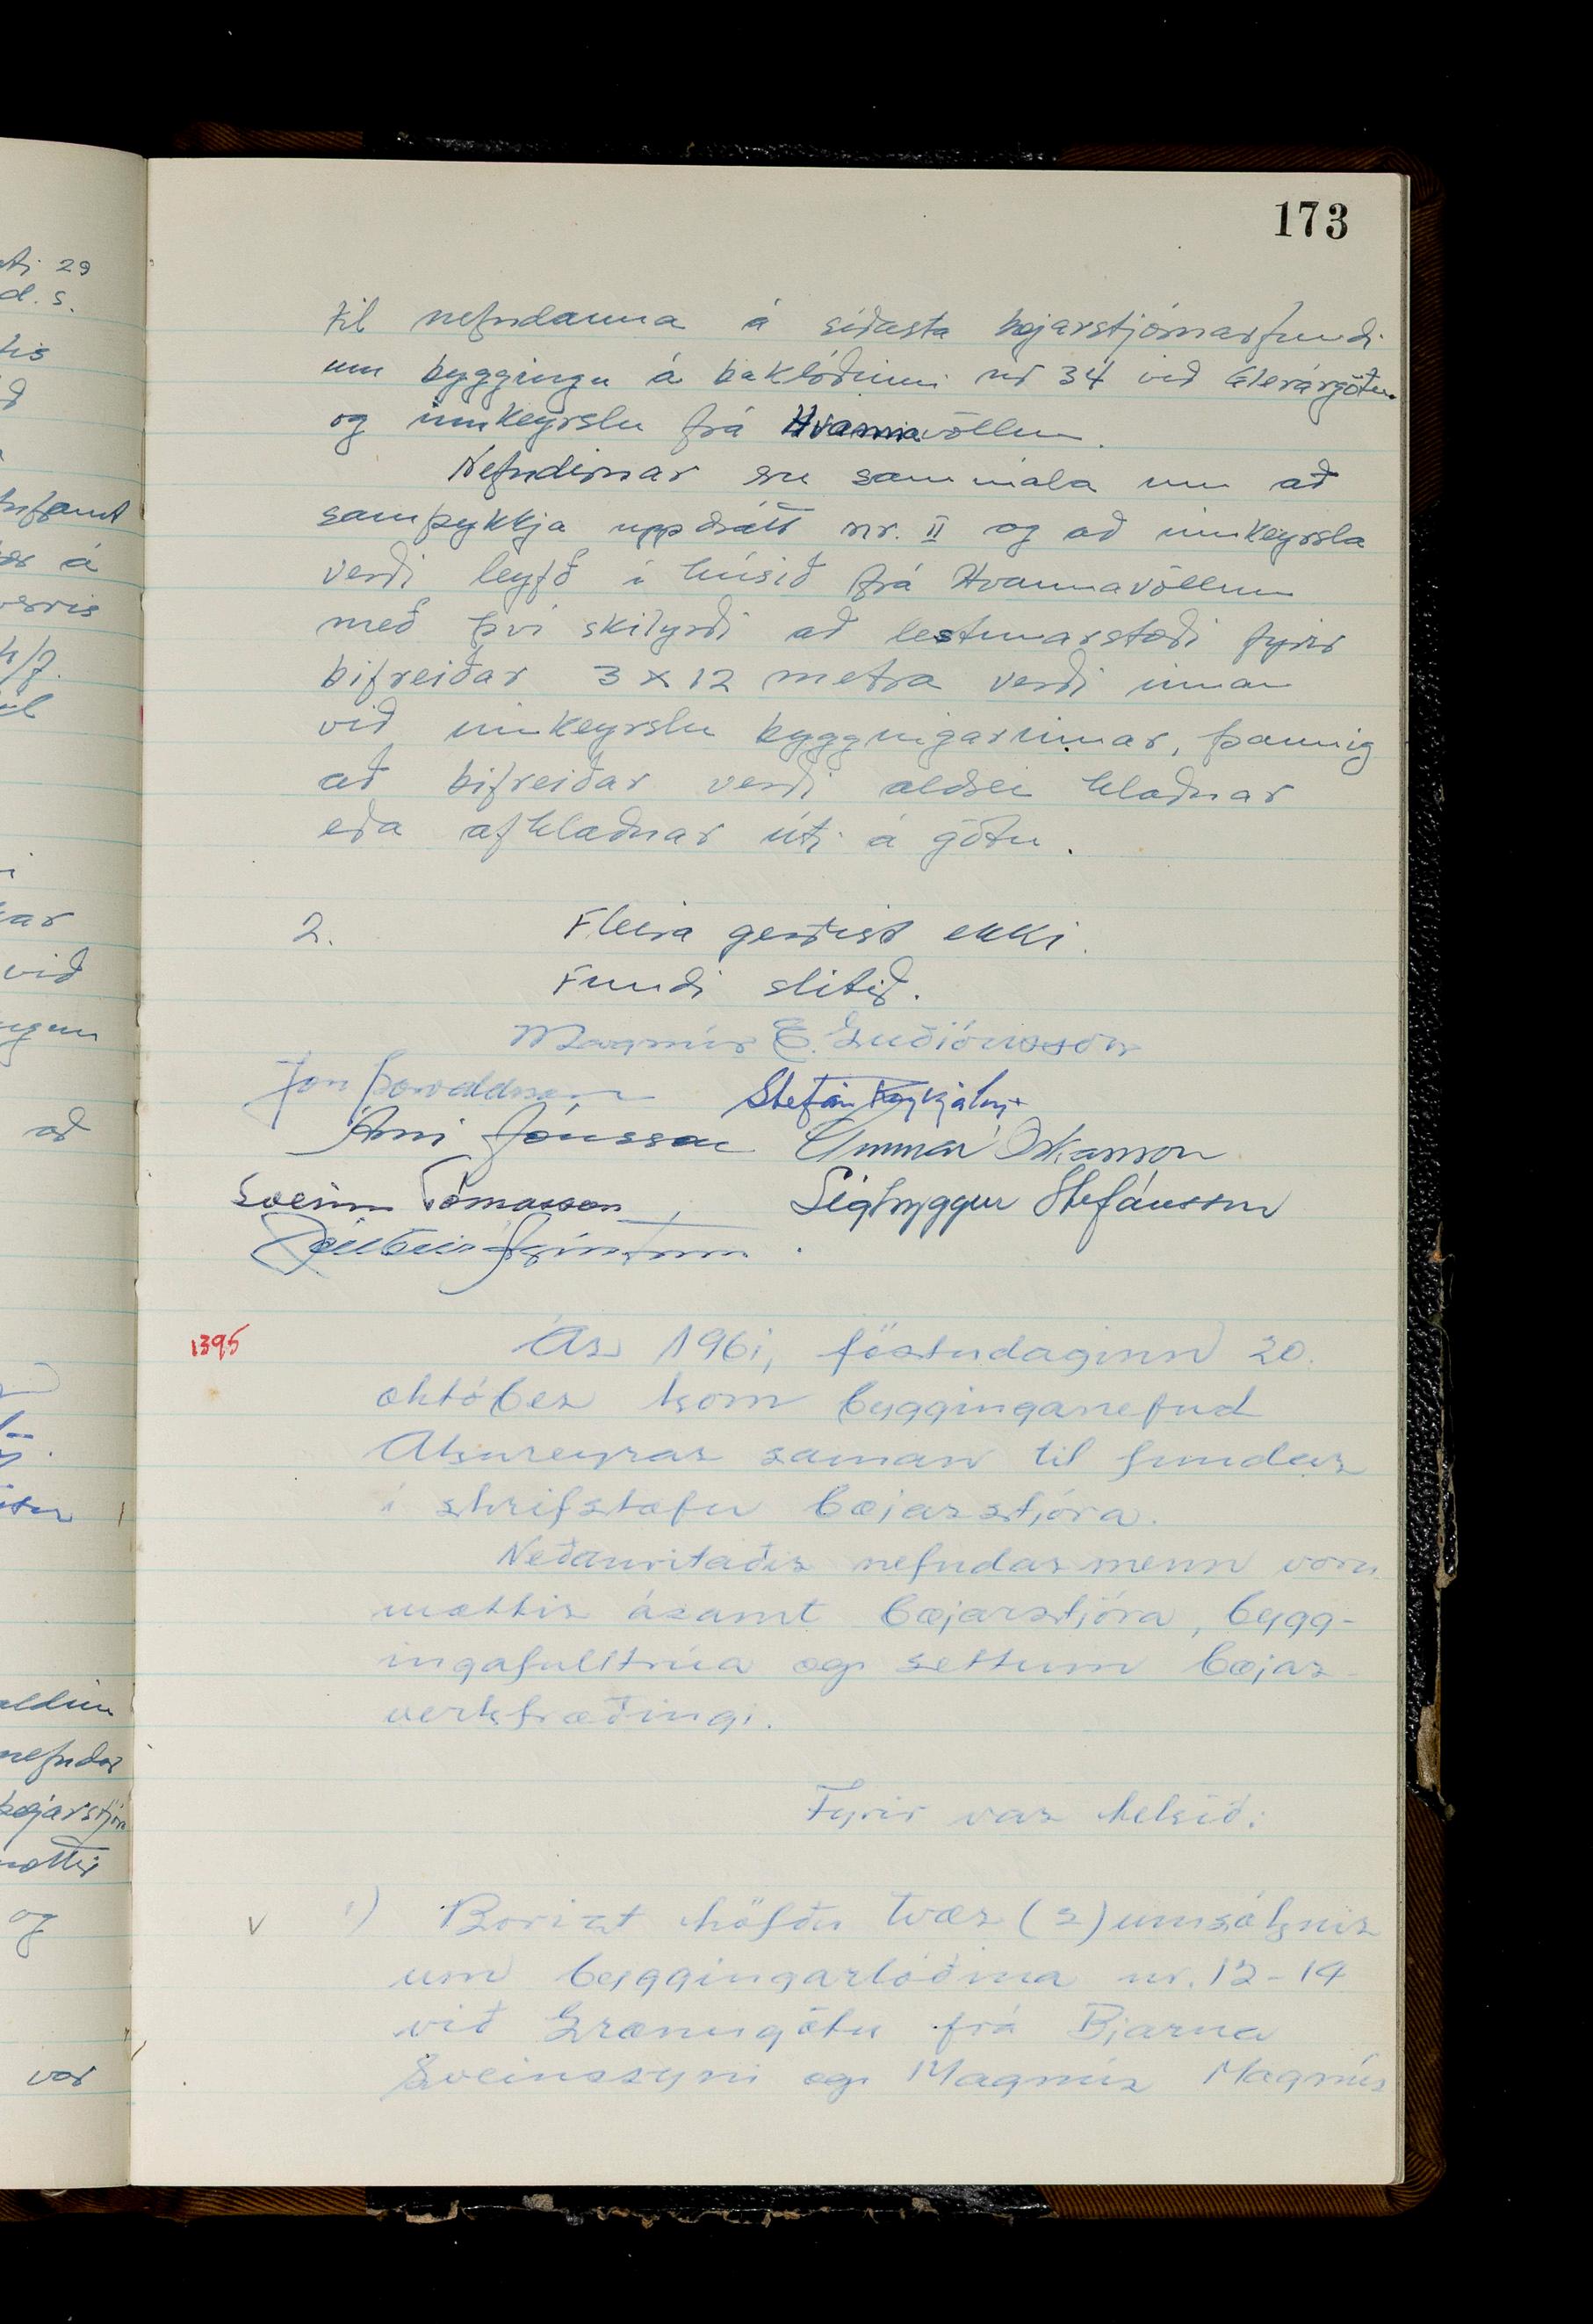 173
til nefndanna á síðasta bæjarstjórnarfundi
um byggingu á baklóðinni nr 34 við Glerárgötu.
og innkeyrslu frá Hvannavöllum.
Nefndirnar eru sammála um að
samþykkja uppdrátt nr. II og að innkeyrsla
verði leyfð í húsið frá Hvannavöllum
með því skilyrði að lestunarstæði fyrir
bifreiðar 3 x 12 metra verði innan
við innkeyrslu byggingarinnar, þannig
að bifreiðar verði aldrei hlaðnar
eða afhlaðnar úti á götu.
2. Fleira gerðist ekki.
Fundi slitið.
Magnús E. Guðjónsson
Jón Þorvaldsson Stefán Reykjalín
Árni Jónsson Gunnar Óskarsson
Sveinn Tómasson Sigtryggur Stefánsson
1395 Ár 1961, föstudaginn 20.
október kom bygginganefnd
Akureyrar saman til fundar
í skrifstofu bæjarstjóra.
Neðanritaðir nefndarmenn voru
mættir ásamt bæjarstjóra, bygg-
ingafulltrúa og settum bæjar-
verkfræðingi.
Fyrir var tekið:
v 1) Borizt höfðu tvær (2) umsóknir
um byggingarlóðina nr. 12-14
við Grænugötu frá Bjarna
Sveinssyni og Magnús Magnús